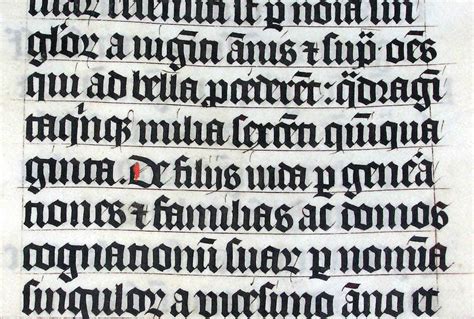 suaꝝ recensiti sт ꝑ noīa sin
gloꝝ a uigīti ānis ⁊ sup̄ oēs
qui ad bella ꝓcederēt : qͣdragī
taqͥnqꝫ milia sexcēti quīqua
ginta. De filijs iuda ꝑ genеͣ
tiones ⁊ familias ac domos
cognationū suaꝝ ꝑ nomīa
singuloꝝ a uicesimo āno et